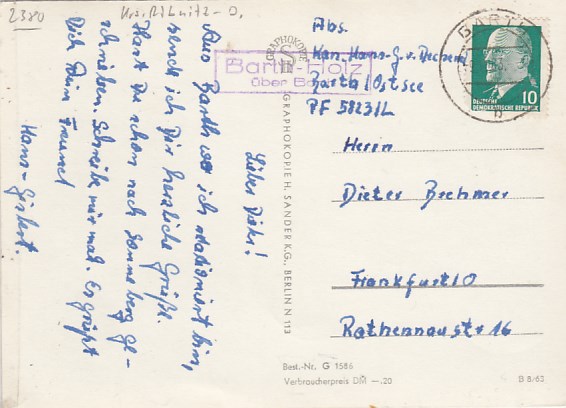 2380 Krs. Ribnitz-D.
Lieber Dieter!
Aus Barth wo ich stationiert bin,
sende ich Dir herzliche Grüße.
Hast Du schon nach Sonneberg ge-
schrieben. Schreibe mir mal. Es grüßt
Dich Dein Freund
Hans-Gisbert.
GRAPHOKOPIE
GRAPHOKOPIE H. SANDER K.G., BERLIN N 113
Barth-Holz
über Barth
Abs.
Kan. Hans-G. v.
Barth/Ostsee
PF 58231/L
BARTH
b
10
DEUTSCHE
DEMOKRATISCHE REPUBLIK
Herrn
Dieter Brehmer
Frankfurt/O
Rathenaustr 16
Best.-Nr. G 1586
Verbraucherpreis DM —.20
B 8/63